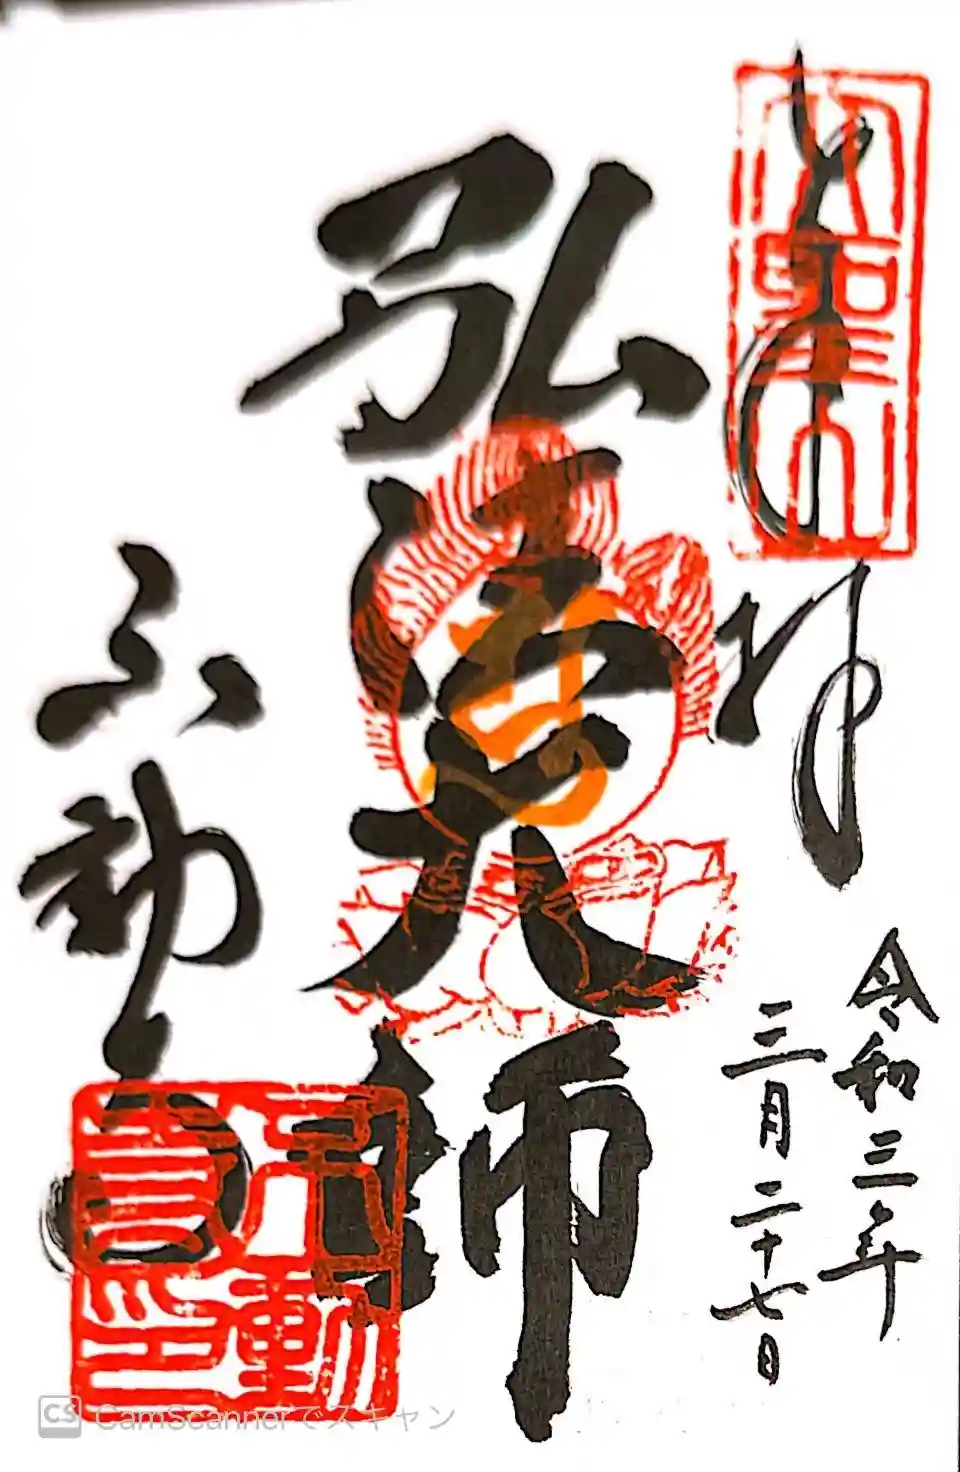 奉拝
令和三年
三月二十七日
大聖山
弘法大師
不動尊
不動
尊印
CS CamScannerでスキャン